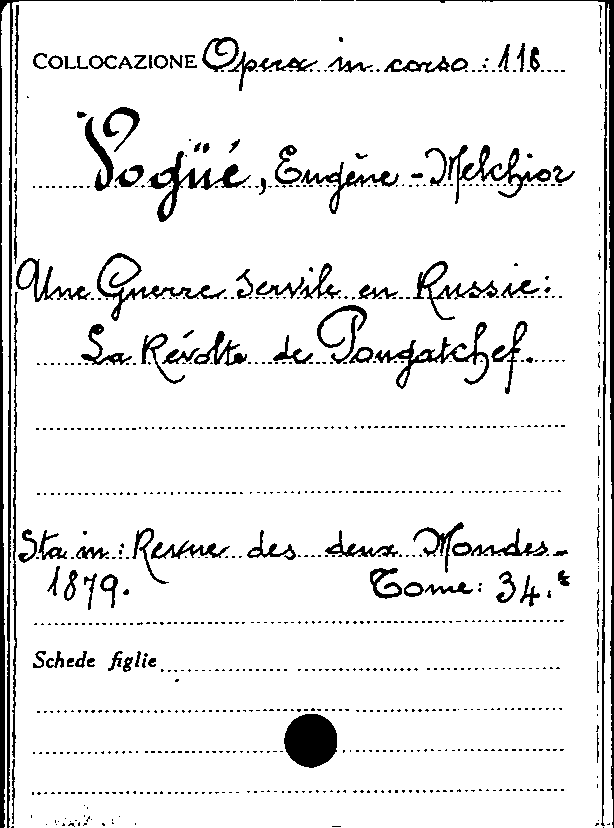 COLLOCAZIONE Opera in corso: 118
Vogüé, Eugène-Melchior
Une Guerre servile en Russie:
La Révolte de Pougatchef.
Sta in: Revue des deux Mondes-
1879. Tome: 34.e
Schede figlie